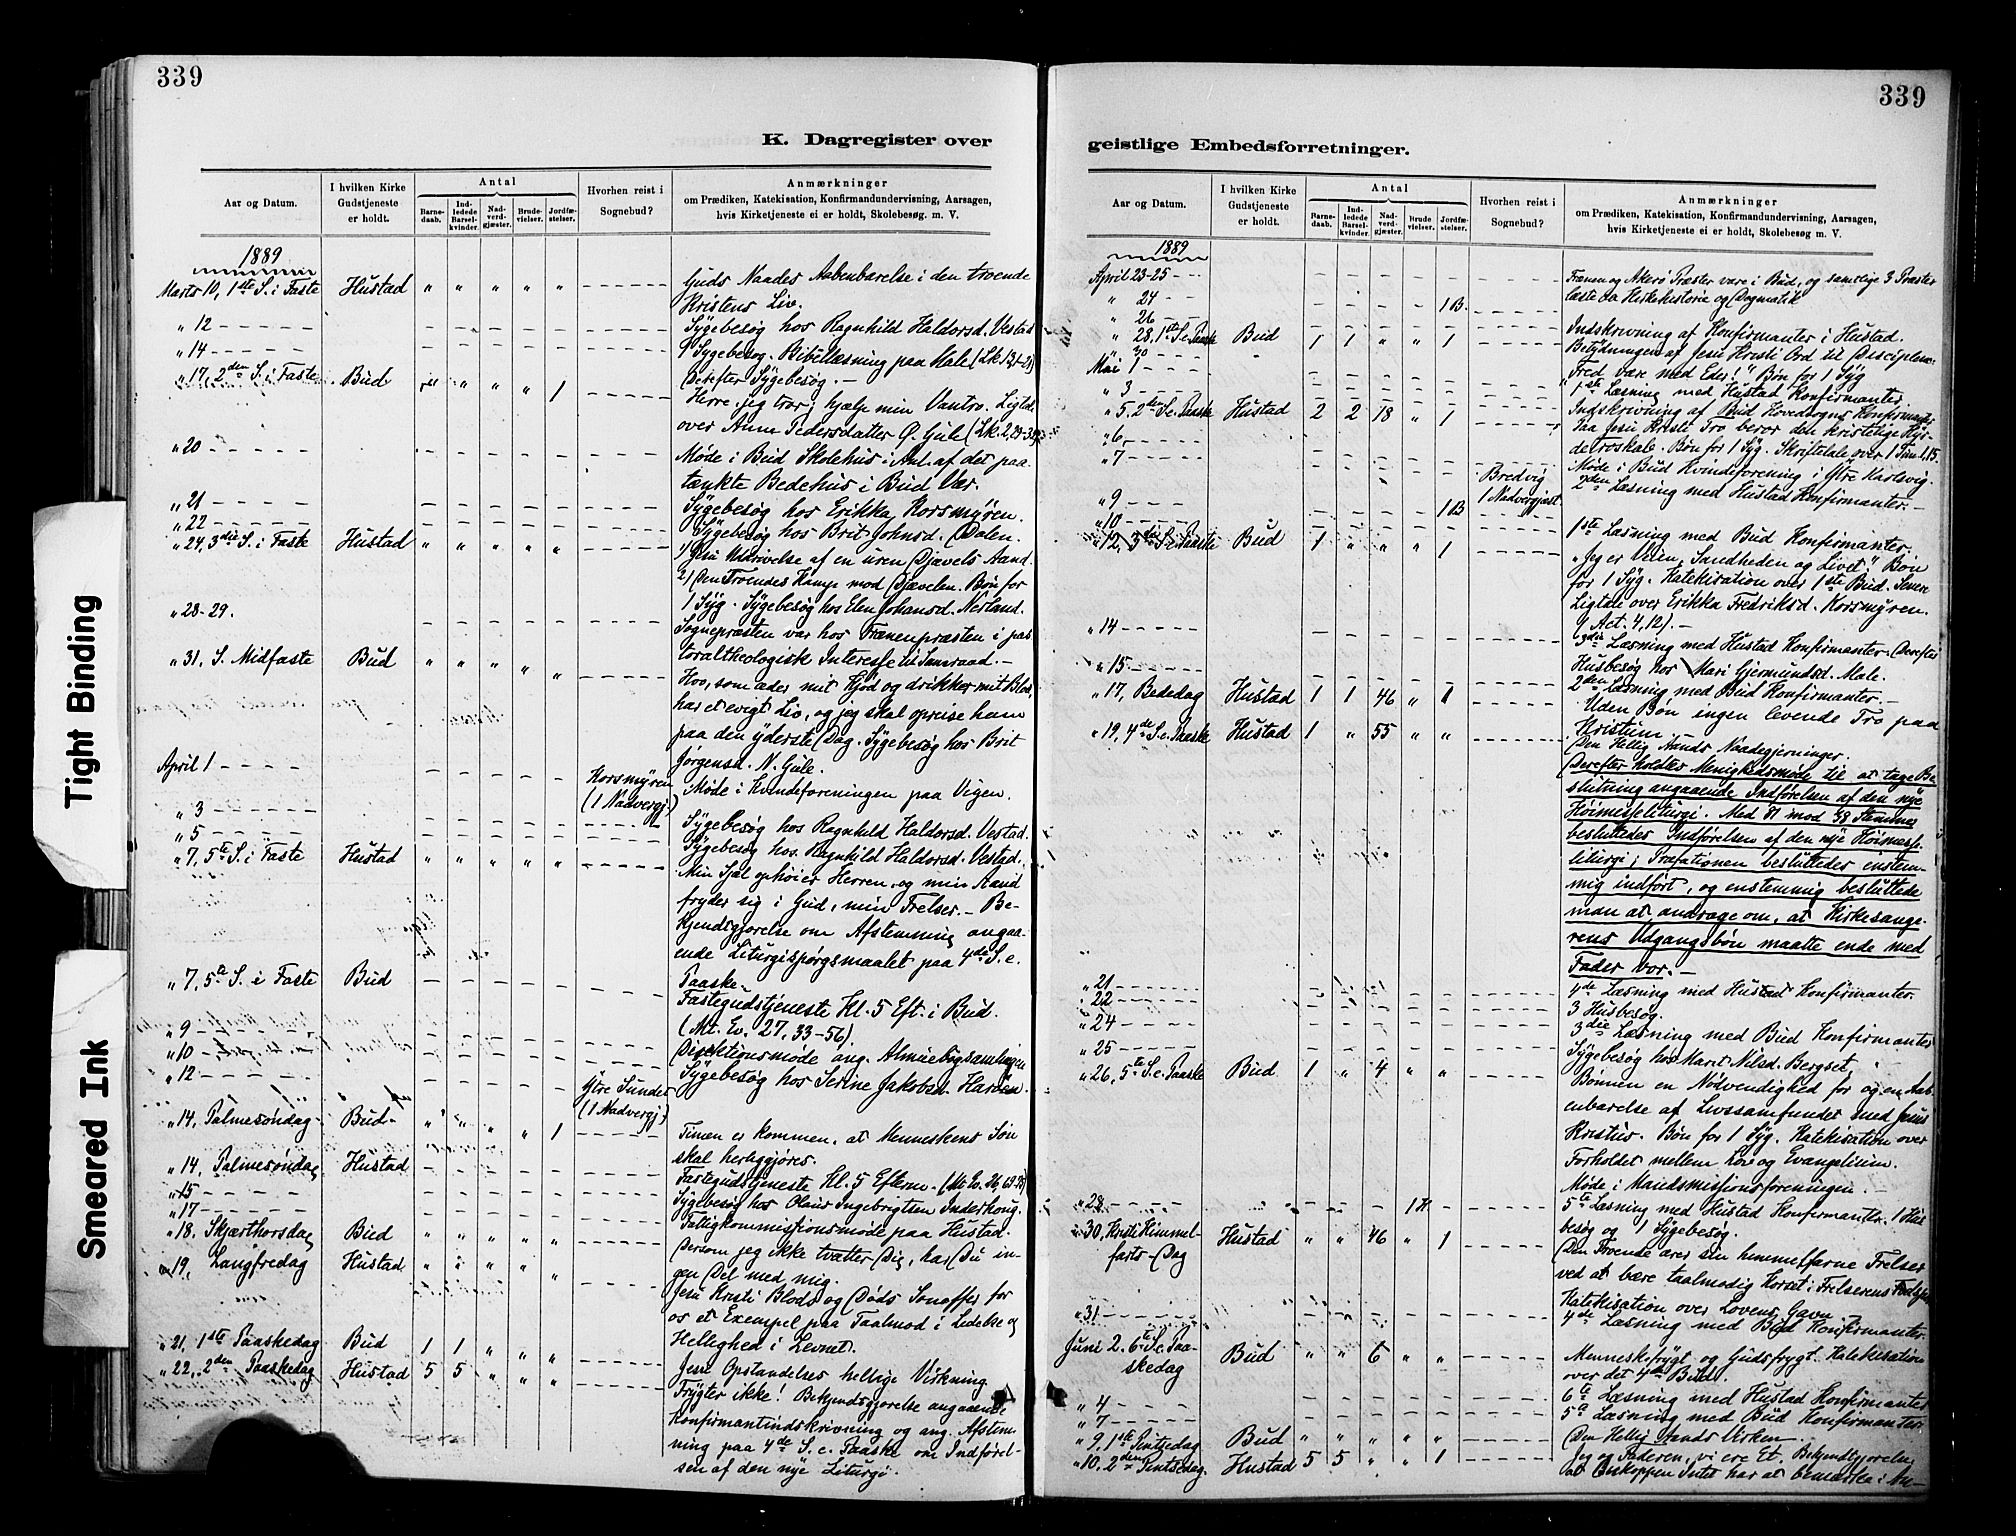 339
K. Dagregister over
Aar og Datum.
I hvilken Kirke Gudstjeneste er holdt.
Antal
Barnedaab.
Indledede Barselkvinder.
Nadverdgjæster.
Brudevielser.
Jordfæstelser.
Hvorhen reist i Sognebud?
Anmærkninger
om Prædiken, Katekisation, Konfirmandundervisning, Aarsagen,
hvis Kirketjeneste ei er holdt, Skolebesøg. m. V.
1889
Marts 10, 1ste S. i Faste Hustad " " " " " Guds Naades Aabenbarelse i den troende
Kristens Liv.
" 12 Sygebesøg hos Ragnhild Haldorsd. Vestad
" 14 Sygebesøg. Bibellæsning paa Male
" 17, 2den S. i Faste Bud " " " 1 Derefter Sygebesøg. -
Herre, jeg tror, hjælp min Vantro. Ligtale
over Anne Pedersdatter Ø. Gule
" 20 Møde i Bud Skolehus i Anl. af det paa-
tænkte Bedehus i Bud Vær.
" 21 Sygebesøg hos Erikka Korsmyren.
" 22 Sygebesøg hos Brit Johnsd. Dalen.
" 24, 3die S. i Faste Hustad " " " " " 1) Jesu Uddrivelse af en uren Djævels Aand.
2) Den Troendes Kamp mod Djævelen. Bøn for
1 Syg. Sygebesøg hos Elen Johansd. Nerland.
" 28-29. Sognepræsten var hos Frænenpræsten i pas-
toraltheologisk Interesse til Samraad. -
" 31, S. Midfaste Bud " " " " " Hvo, som æder mit Kjød og drikker mit Blod,
har et evigt Liv, og jeg skal opreise ham
paa den yderste Dag. Sygebesøg hos Brit
Jørgensd. N. Gule.
April 1 Korsmyren Møde i Kvindeforeningen paa Vigen.
(1 Nadvergj.)
" 3 Sygebesøg hos Ragnhild Haldorsd. Vestad.
" 5 Sygebesøg hos Ragnhild Haldorsd. Vestad.
" 7, 5te S. i Faste Hustad " " " " " Min Sjæl ophøier Herren, og min Aand
fryder sig i Gud, min Frelser. - Be-
kjendtgjørelse om Afstemning angaa-
ende Liturgispørgsmaalet paa 4de S. e.
Paaske.
" 7, 5te S. i Faste Bud Fastegudstjeneste Kl. 5 Eft. i Bud.
(Mt. Ev. 27, 33-56).
" 9 Direktionsmøde ang. Almuebogsamlingen
" 10 Sygebesøg hos Serine Jakobsd. Harøen.
" 12 Ytre Sundet
(1 Nadvergj.)
" 14, Palmesøndag Bud " " " " 1 Timen er kommen, at Menneskens Søn
skal herliggjøres.
" 14, Palmesøndag Hustad Fastegudstjeneste Kl. 5 Efterm.
" 15 Sygebesøg hos Olaus Ingebrigtsen Inderhaug.
" 17 Fattigkommissionsmøde paa Hustad.
" 18. Skjærthorsdag Bud " " " " " Dersom jeg ikke tvætter Dig, har Du in-
gen Del med mig.
" 19, Langfredag Hustad " " " " " Jesu Kristi Blods og Døds Sonoffer for
os et Exempel paa Taalmod i Lidelse og
Hellighed i Levnet.
" 21, 1ste Paaskedag Bud 1 1 " " " Jesu Opstandelses hellige Virkning
" 22, 2den Paaskedag Hustad 5 5 " " " Frygter ikke! Bekjendtgjørelse angaaende
Konfirmantindskrivning og ang. Afstem-
ning paa 4de S. e. Paaske om Indførel-
sen af den nye Liturgi.
339
geistlige Embedsforretninger.
Aar og Datum.
I hvilken Kirke Gudstjeneste er holdt.
Antal
Barnedaab.
Indledede Barselkvinder.
Nadverdgjæster.
Brudevielser.
Jordfæstelser.
Hvorhen reist i Sognebud?
Anmærkninger
om Prædiken, Katekisation, Konfirmandundervisning, Aarsagen,
hvis Kirketjeneste ei er holdt, Skolebesøg m. V.
1889
April 23-25 Frænen og Akerø Præster vare i Bud, og samtlige 3 Præster
" 24 1 B. læste da Kirkehistorie og Dogmatik
" 26 Indskrivning af Konfirmanter i Hustad.
" 28, 1ste S. e. Paaske Bud 1 1 " " 1 Betydningen af Jesu Kristi Ord til Disciplene:
" 30 "Fred være med Eder!" Bøn for 1 Syg
Mai 1 1ste Læsning med Hustad Konfirmanter.
" 3 Indskrivning af Bud Hovedsogns Konfirmanter
" 5. 2den S. e. Paaske Hustad 2 2 18 " 1 Paa Jesu Kristi Tro beror den kristelige Hyr-
" 6, detroskab. Bøn for 1 Syg. Skriftetale over 1 Tim 1,15.
" 7 Møde i Bud Kvindeforening i Ytre Karlsvig.
Bredvig 2den Læsning med Hustad Konfirmanter. -
" 9 1 Nadvergjest
" 10 1 B 1ste Læsning med Bud Konfirmanter.
" 12, 3die S. e. Paaske Bud 1 " " " 1 "Jeg er Veien, Sandheden og Livet." Bøn
for 1 Syg. Katekisation over 1ste Bud. Senere
Ligtale over Erikka Fredriksd. Korsmyren.
(Act. 4, 12). -
" 14 3die Læsning med Hustad Konfirmanter. Derefter
Husbesøg hos Mari Gjermundsd. Male.
" 15 2den Læsning med Bud Konfirmanter. -
" 17, Bededag Hustad 1 1 46 " 1 Uden Bøn ingen levende Tro paa
Kristum
" 19, 4de S. e. Paaske Hustad 1 " 55 " " Den Hellig Aands Naadegjerninger.
Derefter holdtes Menighedsmøde til at tage Be-
slutning angaaende Indførelsen af den nye
Høimesseliturgi. Med 81 mod 38 Stemmer
besluttedes Indførelsen af den nye Høimesse-
liturgi; Præfationen besluttedes enstem-
mig indført, og enstemmig besluttede
man at andrage om, at Kirkesange-
rens Udgangsbøn maatte ende med
Fader vor. -
" 21 4de Læsning med Hustad Konfirmanter.
" 22 3 Husbesøg.
" 24 3die Læsning med Bud Konfirmanter
" 25 Sygebesøg hos Marit Nilsd. Bergset.
" 26, 5te S. e. Paaske Bud 1 " 4 " " Bønnen en Nødvendighed for og en Aab-
enbarelse af Livssamfundet med Jesus
Kristus. Bøn for 1 Syg. Katekisation over
Forholdet mellem Lov og Evangelium.
Møde i Mandsmissionsforeningen. -
" 28 1 H. 5te Læsning med Hustad Konfirmanter. 1 Hus-
besøg og 1 Sygebesøg.
" 30, Kristi Himmel-
farts-Dag Hustad " " 46 " 1 Den Troende ærer sin himmelfarne Frelser
ved at bære taalmodig Korset i Frelserens
Katekisation over Lovens Gavn
" 31 4de Læsning med Bud Konfirmanter.
Juni 2. 6te S. e. Paa-
skedag Bud " " 6 " " Menneskefrygt og Gudsfrygt. Katekisation
over det 4de Bud.
" 4 6te Læsning med Hustad Konfirmanter
" 7 5te Læsning med Bud Konfirmanter.
" 9, 1ste Pintsedag Bud " " " " " Den Hellig Aands Virken.
" 10, 2den Pintsedag. Hustad 5 5 " " 1 Jeg og Faderen, vi ere Et. Bekjendtgjørelse
at Biskoppen Intet har at bemærke i An-
Tight Binding
Smeared Ink